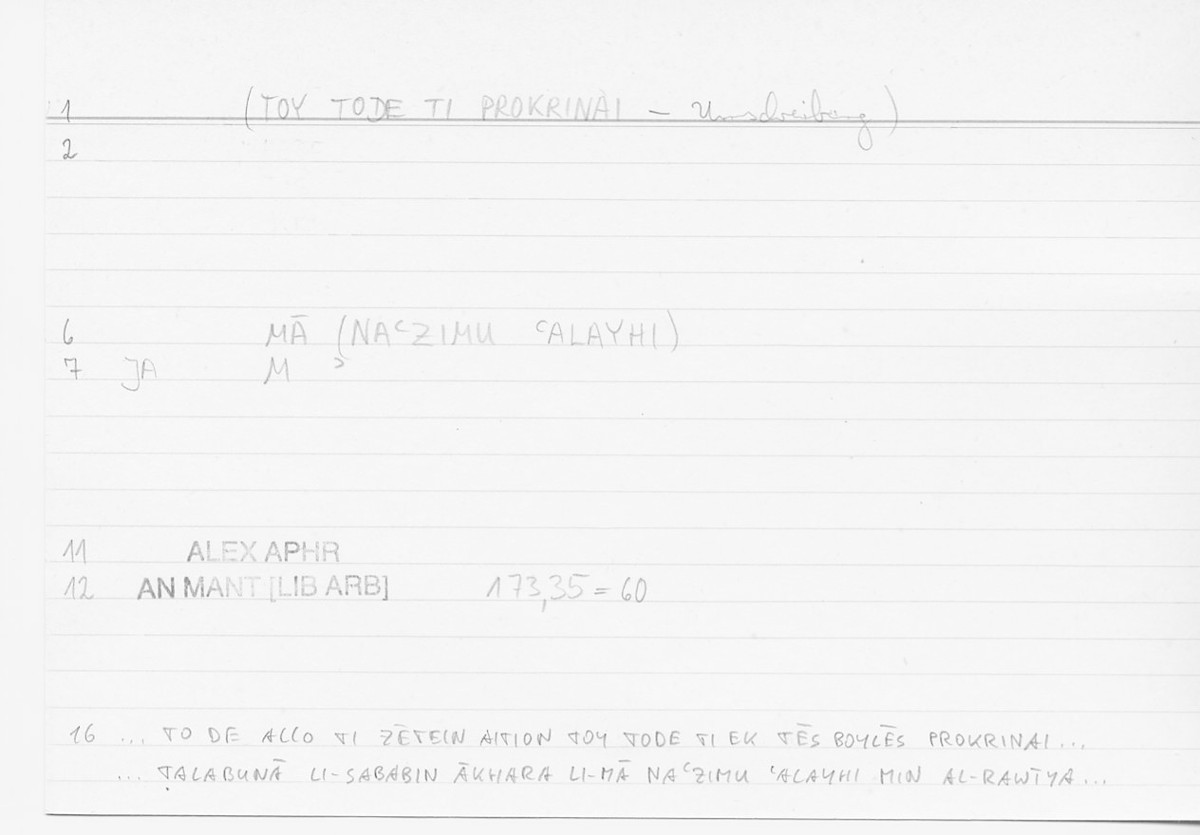 1 (TOY TODE TI PROKRINAI – Umschreibung)
2
6 MĀ (NAʿZIMU ʿALAYHI)
7 JA M ʾ
11 ALEX APHR
12 AN MANT [LIB ARB] 173,35 = 60
16 ... TO DE ALLO TI ZĒTEIN AITION TOY TODE TI EK TĒS BOYLĒS PROKRINAI ...
... ṬALABUNĀ LI-SABABIN ĀKHARA LI-MĀ NAʿZIMU ʿALAYHI MIN AL-RAWĪYA ...